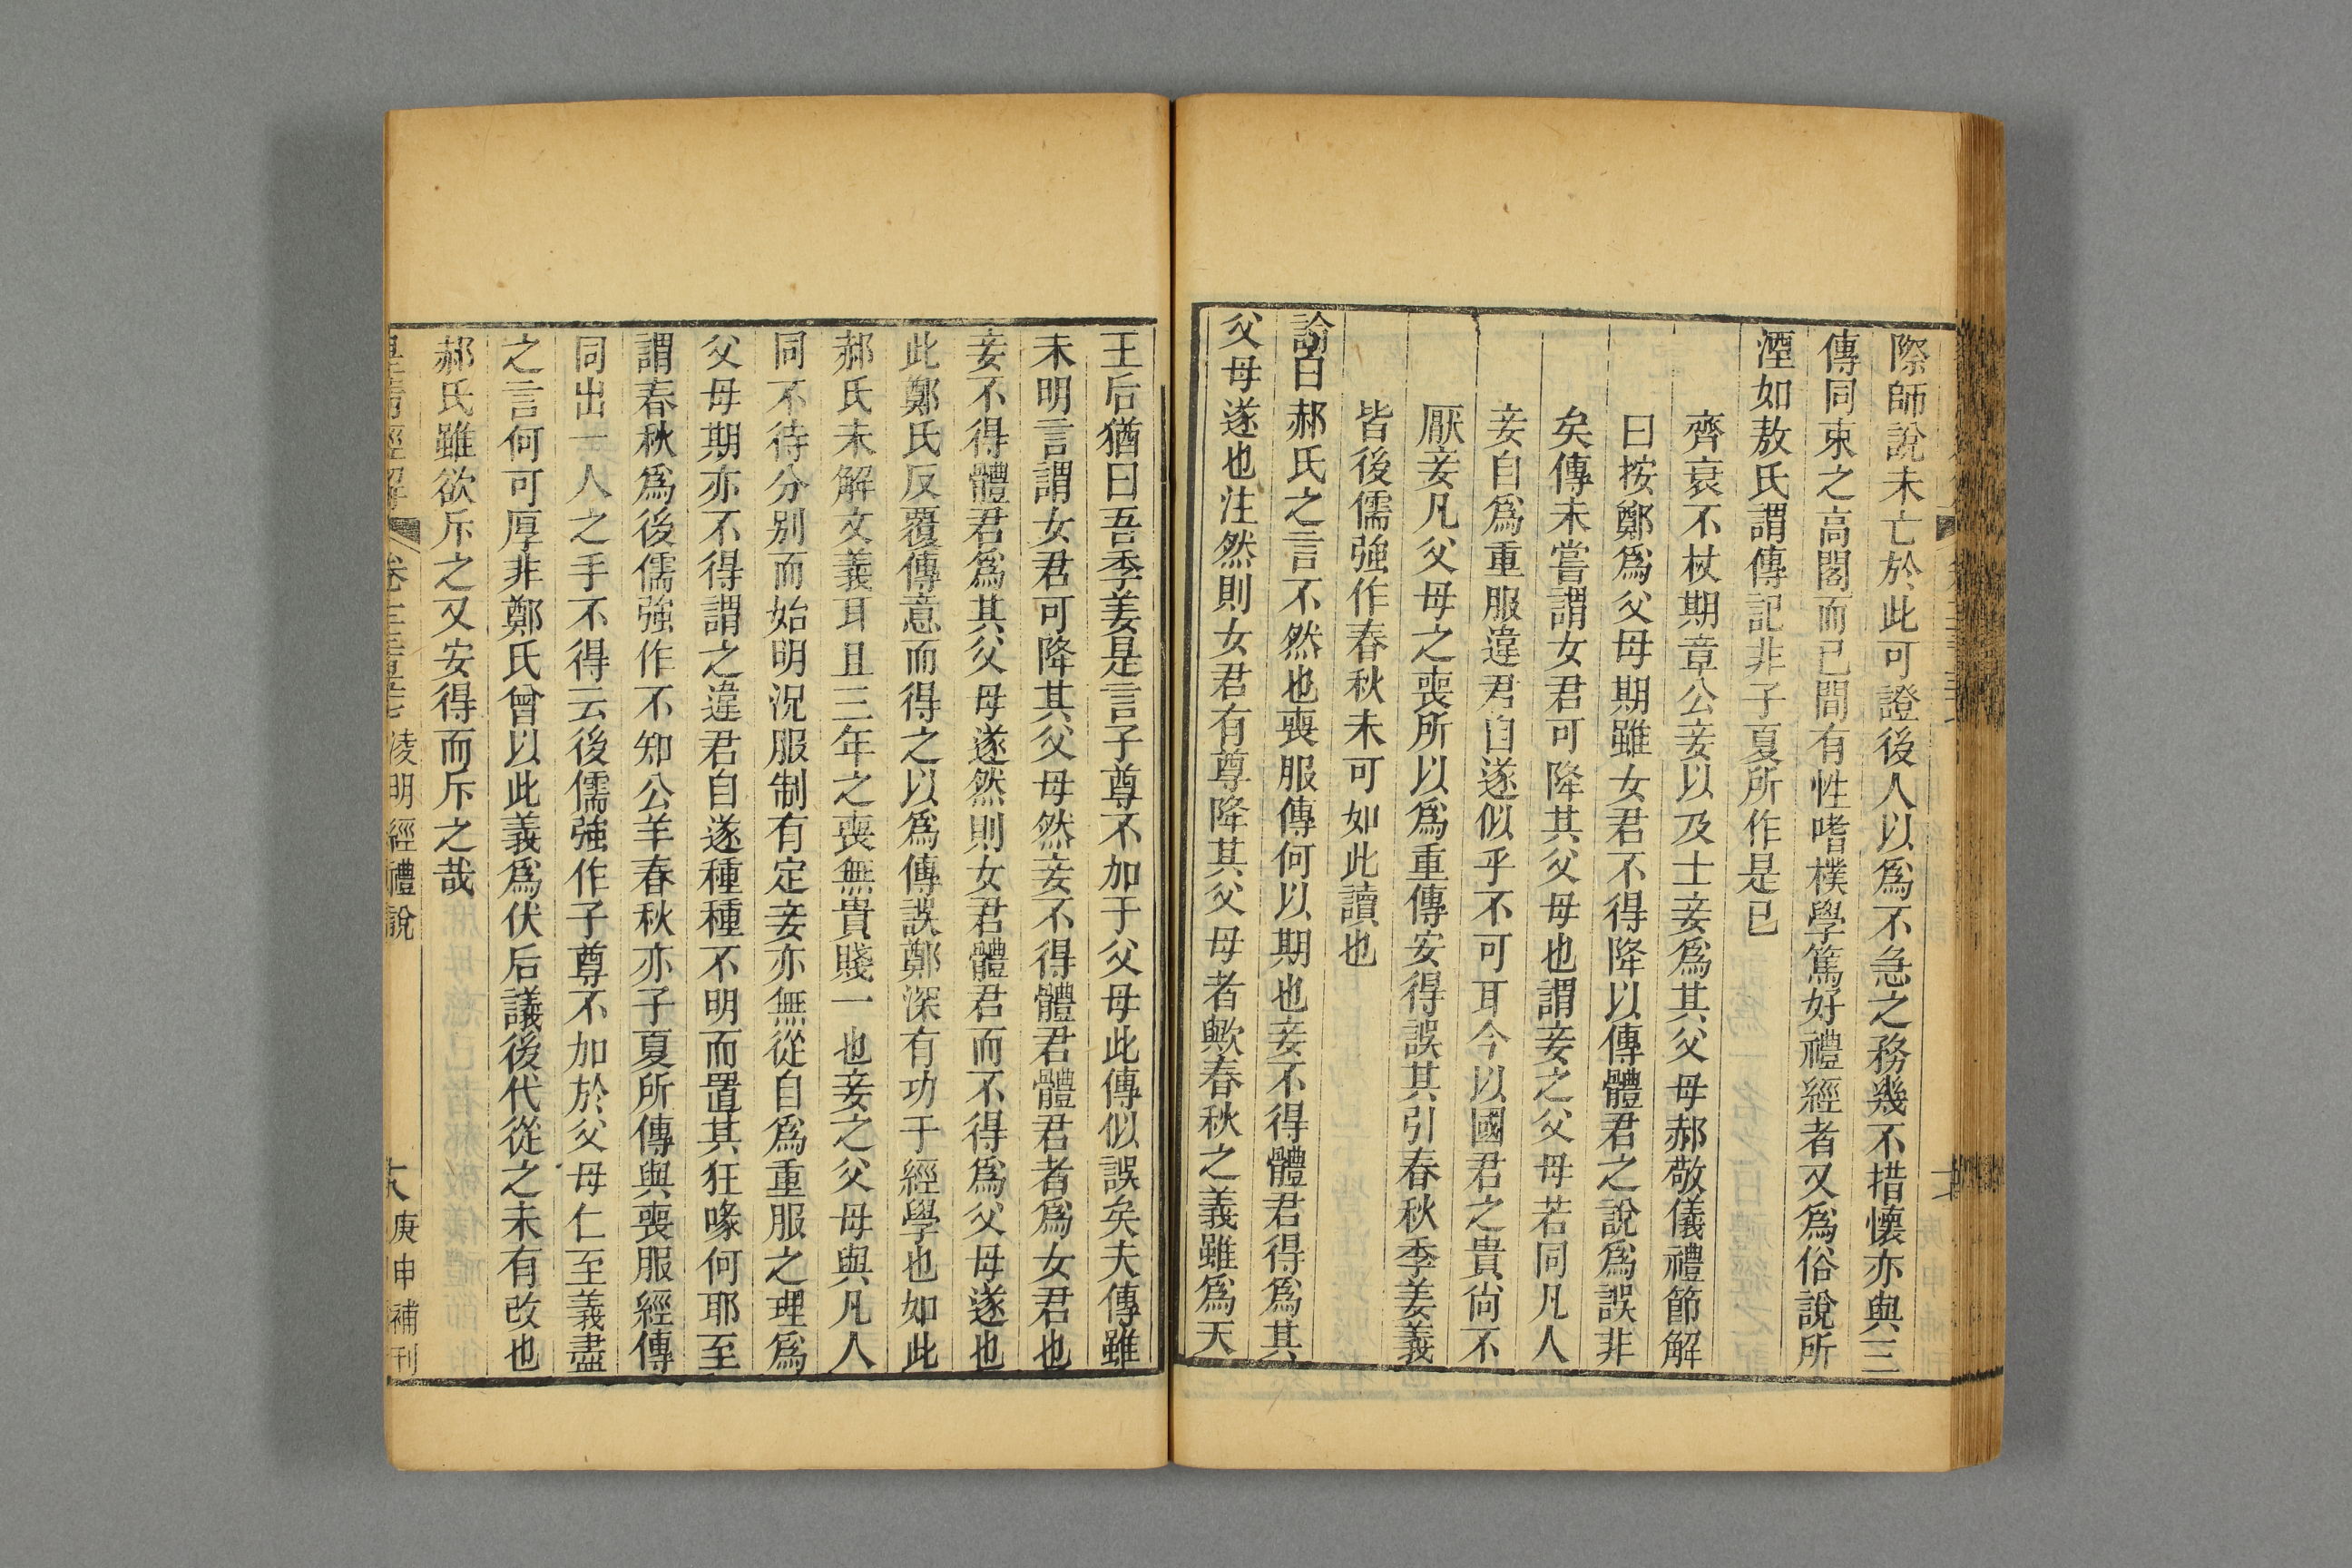 際師說未亡於此可證後人以爲不急之務幾不措懷亦與三
傳同束之高閣而已間有性嗜樸學篤好禮經者又爲俗說所
湮如敖氏謂傳記非子夏所作是已
齊衰不杖期章公妾以及士妾爲其父母郝敬儀禮節解
曰按鄭爲父母期雖女君不得降以傳體君之說爲誤非
矣傳未嘗謂女君可降其父母也謂妾之父母若同凡人
妾自爲重服違君自遂似乎不可耳今以國君之貴尙不
厭妾凡父母之喪所以爲重傳安得誤其引春秋季姜義
皆後儒強作春秋未可如此讀也
論曰郝氏之言不然也喪服傳何以期也妾不得體君得爲其
父母遂也注然則女君有尊降其父母者歟春秋之義雖爲天
王后猶曰吾季姜是言子尊不加于父母此傳似誤矣夫傳雖
未明言謂女君可降其父母然妾不得體君體君者爲女君也
妾不得體君爲其父母遂然則女君體君而不得爲父母遂也
此鄭氏反覆傳意而得之以爲傳誤鄭深有功于經學也如此
郝氏未解文義耳且三年之喪無貴賤一也妾之父母與凡人
同不待分別而始明況服制有定妾亦無從自爲重服之理爲
父母期亦不得謂之違君自遂種種不明而置其狂喙何耶至
謂春秋爲後儒強作不知公羊春秋亦子夏所傳與喪服經傳
同出一人之手不得云後儒強作子尊不加於父母仁至義盡
之言何可厚非鄭氏曾以此義爲伏后議後代從之未有改也
郝氏雖欲斥之又安得而斥之哉
皇清經解
凌明經禮說
庚申補刊